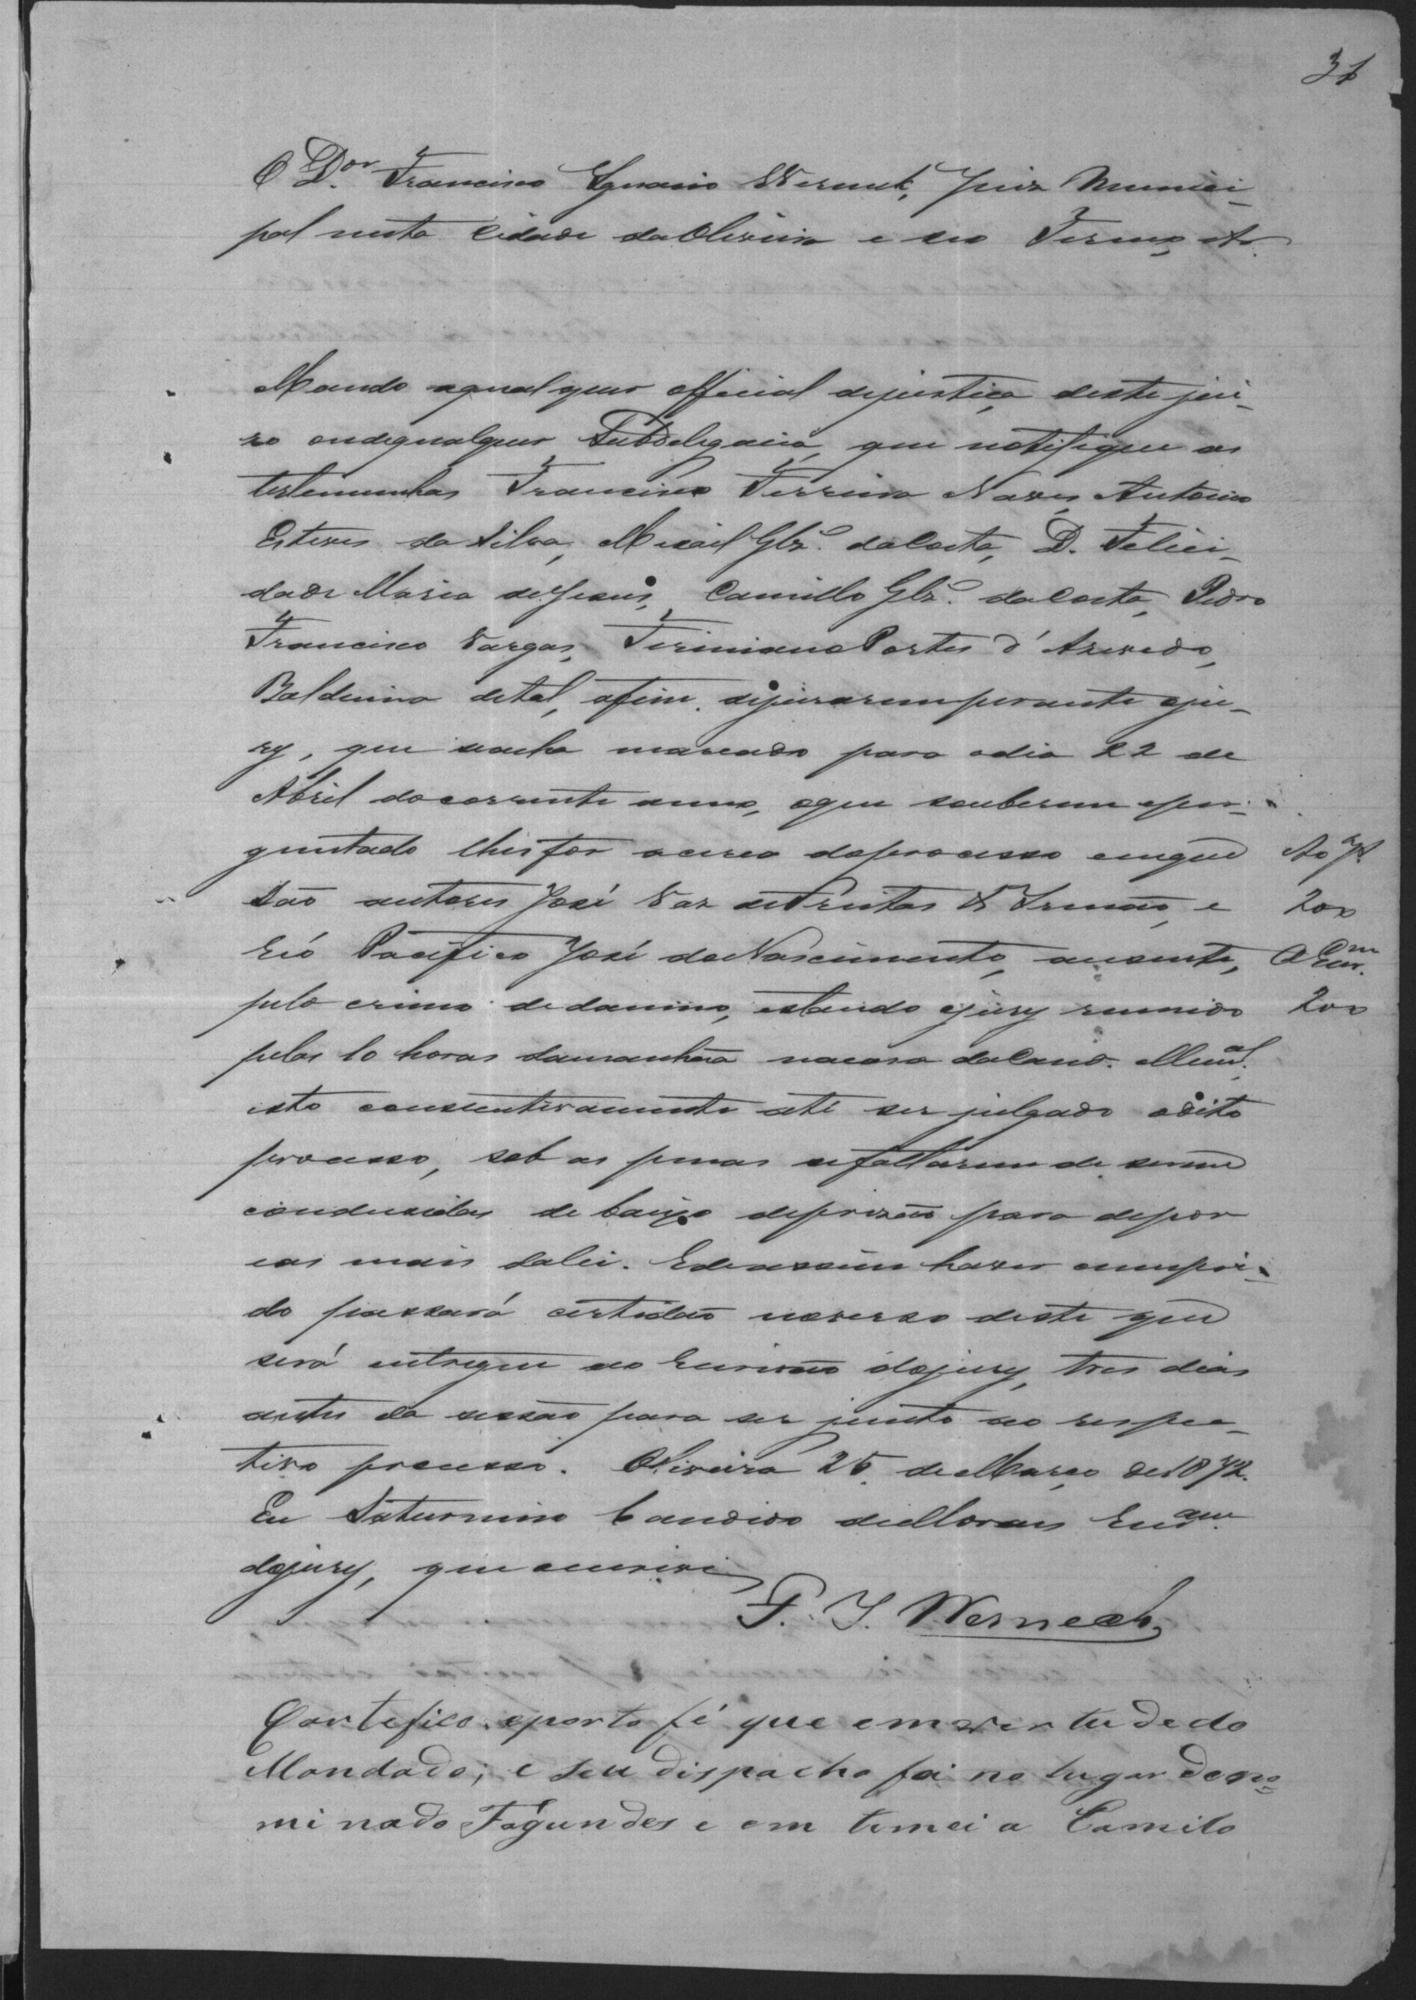 31
O D.or Francisco Ignacio Werneck, Juiz Munici-
pal nesta Cidade da Oliveira e seo Termo, etc.
Mando aqualquer official dejustiça deste jui-
zo oudequalquer Subdelegacia, que notifique as
testemunhas Francisco Ferreira Naves, Antonio
Esteves da Silva, Misael Glz.' daCosta, D. Felici-
dade Maria deJesus, Camillo Glz.' daCosta, Pedro
Francisco Vargas, Firmiano Portes d'Azevedo,
Balduino detal, afim dejurarem perante oju-
ry, que seacha marcado para odia 22 de
Abril docorrente anno, oque souberem eper-
guntado lhesfor acerca doprocesso emque
São autores José Vaz deFreitas & Irmão, e
Reó Pacifico José doNascimento, ausente,
pelo crime dedamno, estando ojury reunido
pelas 10 horas damanhãa nacasa daCam.ª Mun.al,
isto consecutivamente até ser julgado odito
processo, sob as penas sefaltarem de serem
condusidas de baixo deprizão para depor
eas mais dalei. Edeassim haver cumpri-
do passará certidão noverso deste que
será entregue ao Escrivão dojury, tres dias
antes da sessão para ser junto ao respec-
tivo processo. Oliveira 25 deMarço de 1872.
Eu Saturnino Candido deMoraes Escr.am
dojury, que escrevi
Ao J.
200
A Escr.m
200
F. I. Werneck
Certefico eporto fé que emvertudedo
Mandado; e seu dispacho fui no lugar deno-
minado Fagundes e em timei a Camilo